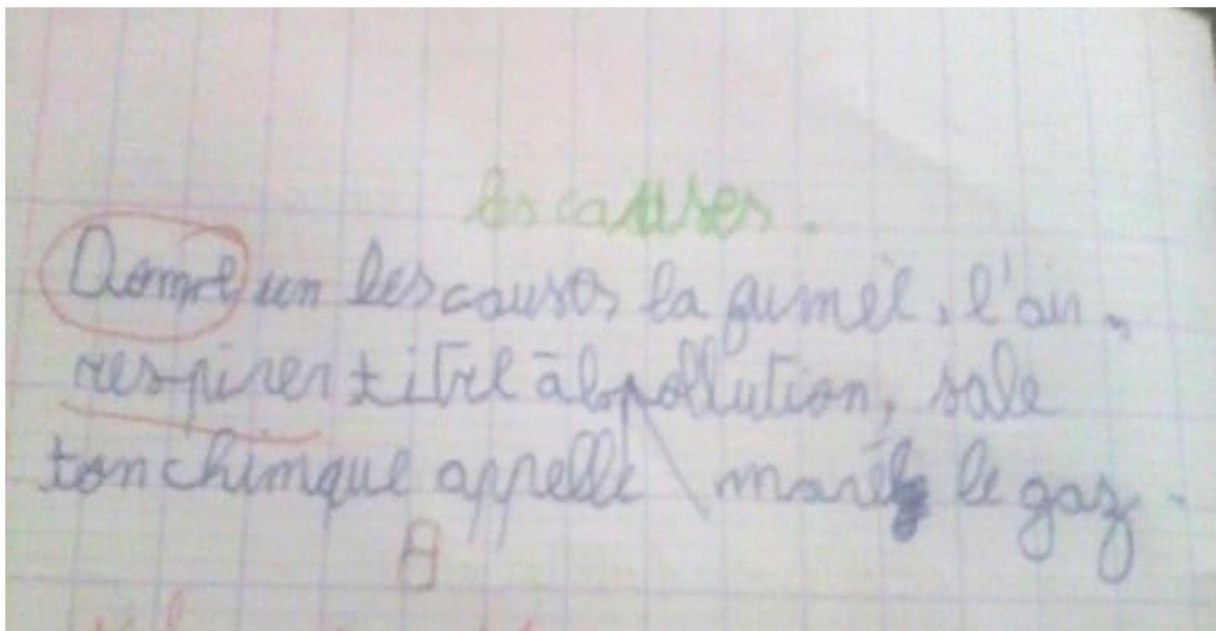 les causes.
Donne un les causes la fumée, l'air,
respirer titre à la pollution, sale
ton chimque appelle marée le gaz.
8